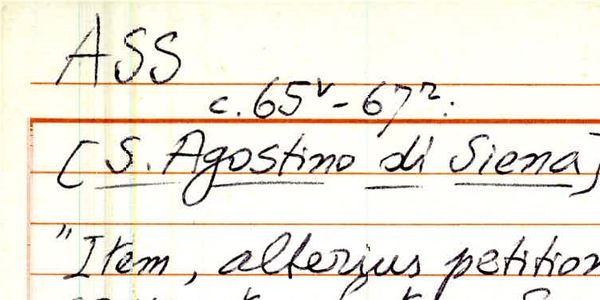 ASS
c. 65v - 67r:
[S. Agostino di Siena]
"Item, alterius petition